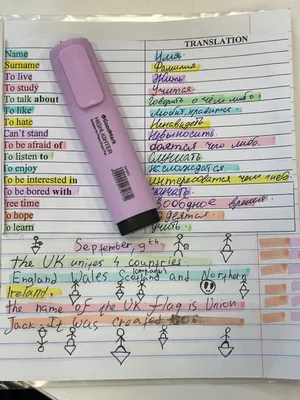 TRANSLATION
Name Имя.
Surname Фамилия
To live Жить
To study Учится
To talk about говорить о чём либо
To like Любит, нравится
To hate Ненавидеть
Can't stand Невыносить.
To be afraid of боятся чего либо.
To listen to слушать
To enjoy наслаждатся
To be interested in интересоватся чем либо
To be bored with скучать.
Free time свободное время
To hope надеятся.
To learn учить.
HIGHLIGHTER
September, 9th
the UK unites 4 countries.
England Wales Scotland and Northern
Ireland.
the name of the UK flag is Union
Jack. It was created 1606.